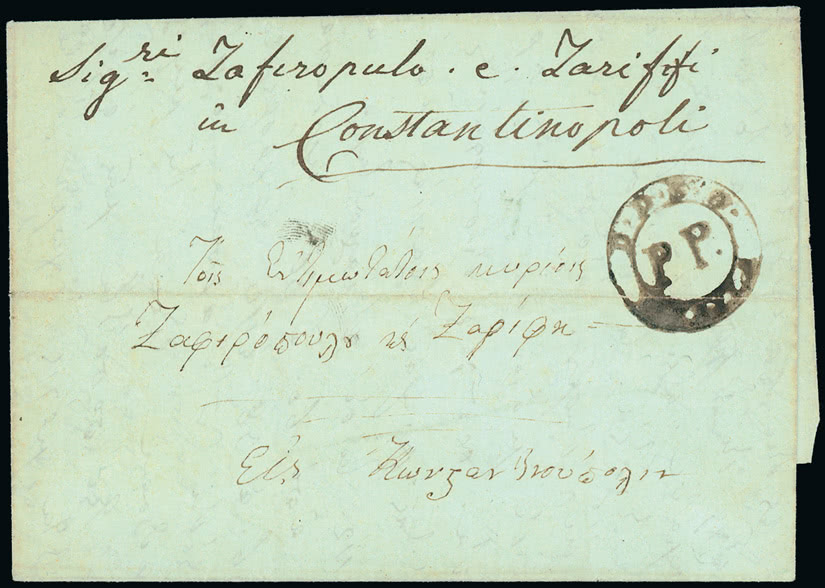 Sig.ri Zafiropulo . e . Zariffi
in Constantinopoli
P P.
Τοῖς ἐντιμωτάτοις κυρίοις
Ζαφιρόπουλῳ κὲ Ζαρίφη =
Εἰς Κωνσταντινούπολιν